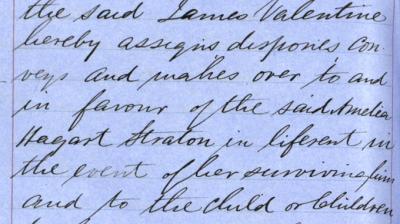 the said James Valentine
hereby assigns dispones con
veys and makes over to and
in favour of the said Amelia
Hagart Straton in liferent in
the event of her surviving him
and to the Child or Children